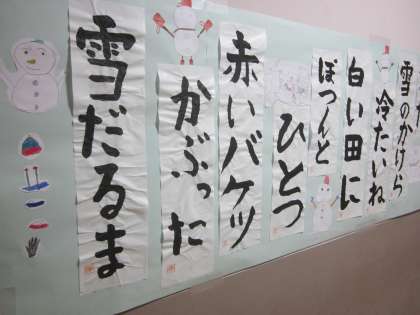 雪のかけら
冷たいね
白い田に
ぽつんと
ひとつ
赤いバケツ
かぶった
雪だるま